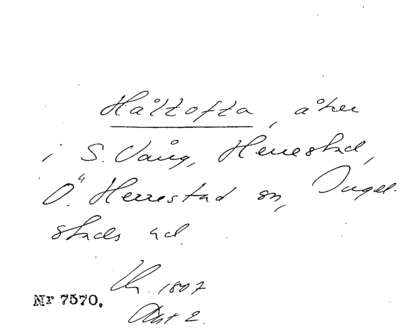 Håltofta, åker
i S. Vång, Herrestad,
Ö. Herrestad sn, Ingel-
stads hd.
Uh. 1807
Akt 2.
Nr 7570.